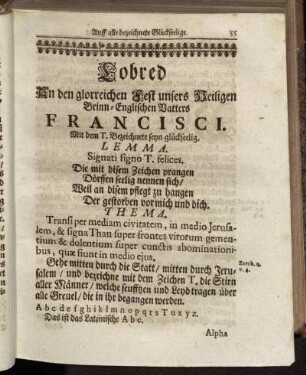 Auff alle bezeichnete Glückseelige. 55
Lobred
An den glorreichen Fest unsers Heiligen
Brinn-Englischen Vatters
FRANCISCI.
Mit dem T. Bezeichnete seyn glückseelig.
LEMMA.
Signati signo T. felices.
Die mit disem Zeichen prangen
Dörffen seelig nennen sich/
Weil an disem pflegt zu hangen
Der gestorben vor mich und dich.
THEMA.
Transi per mediam civitatem, in medio Jerusa-
lem, & signa Thau super frontes virorum gemen-
tium & dolentium super cunctis abominationi-
bus, quæ fiunt in medio ejus.
Gehe mitten durch die Statt/ mitten durch Jeru-
salem/ und bezeichne mit dem Zeichen T. die Stirn
aller Männer/ welche seufftzen und Leyd tragen über
alle Greuel/ die in ihr begangen werden.
Ezech. 9.
v. 4.
A b c d e f g h i k l m n o p q r s T u x y z.
Das ist das Lateinische A b c.
Alpha